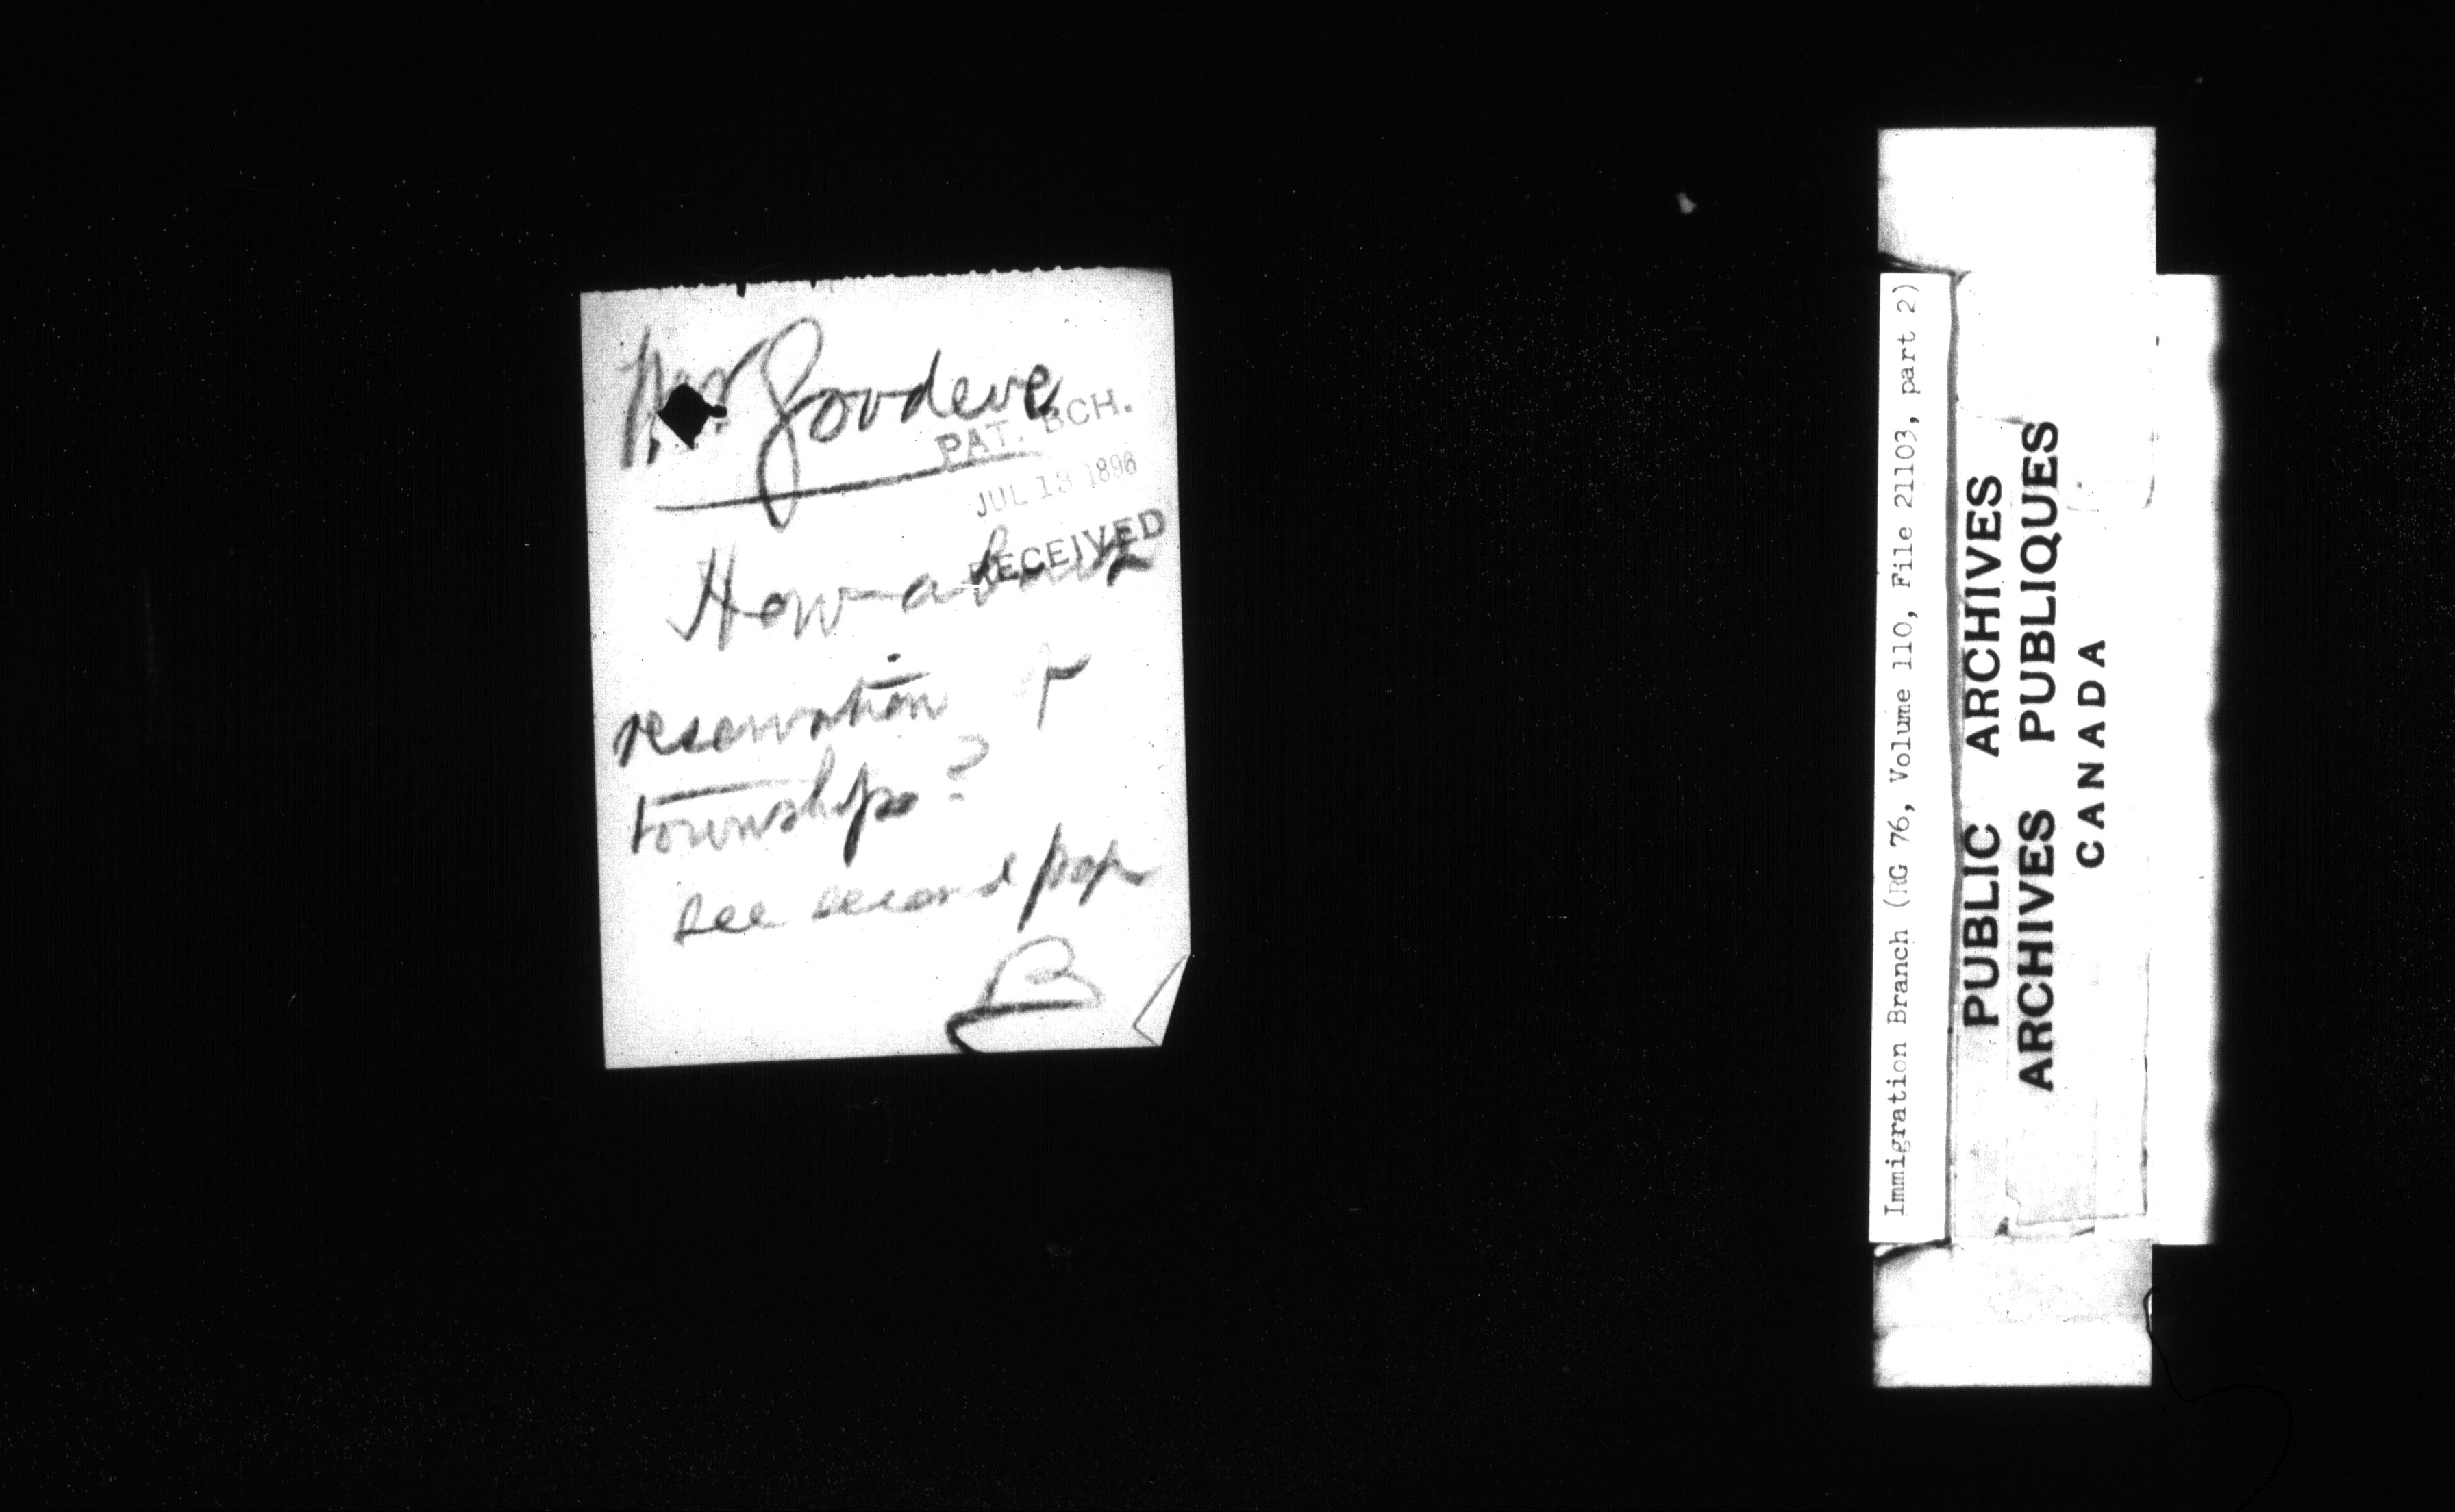 Mr Goodeve
PAT. BCH.
JUL 13 1898
RECEIVED
How about
reservation of
townships?
see second page
B
Immigration Branch (RG 76, Volume 110, File 21103, part 2)
PUBLIC ARCHIVES
ARCHIVES PUBLIQUES
CANADA